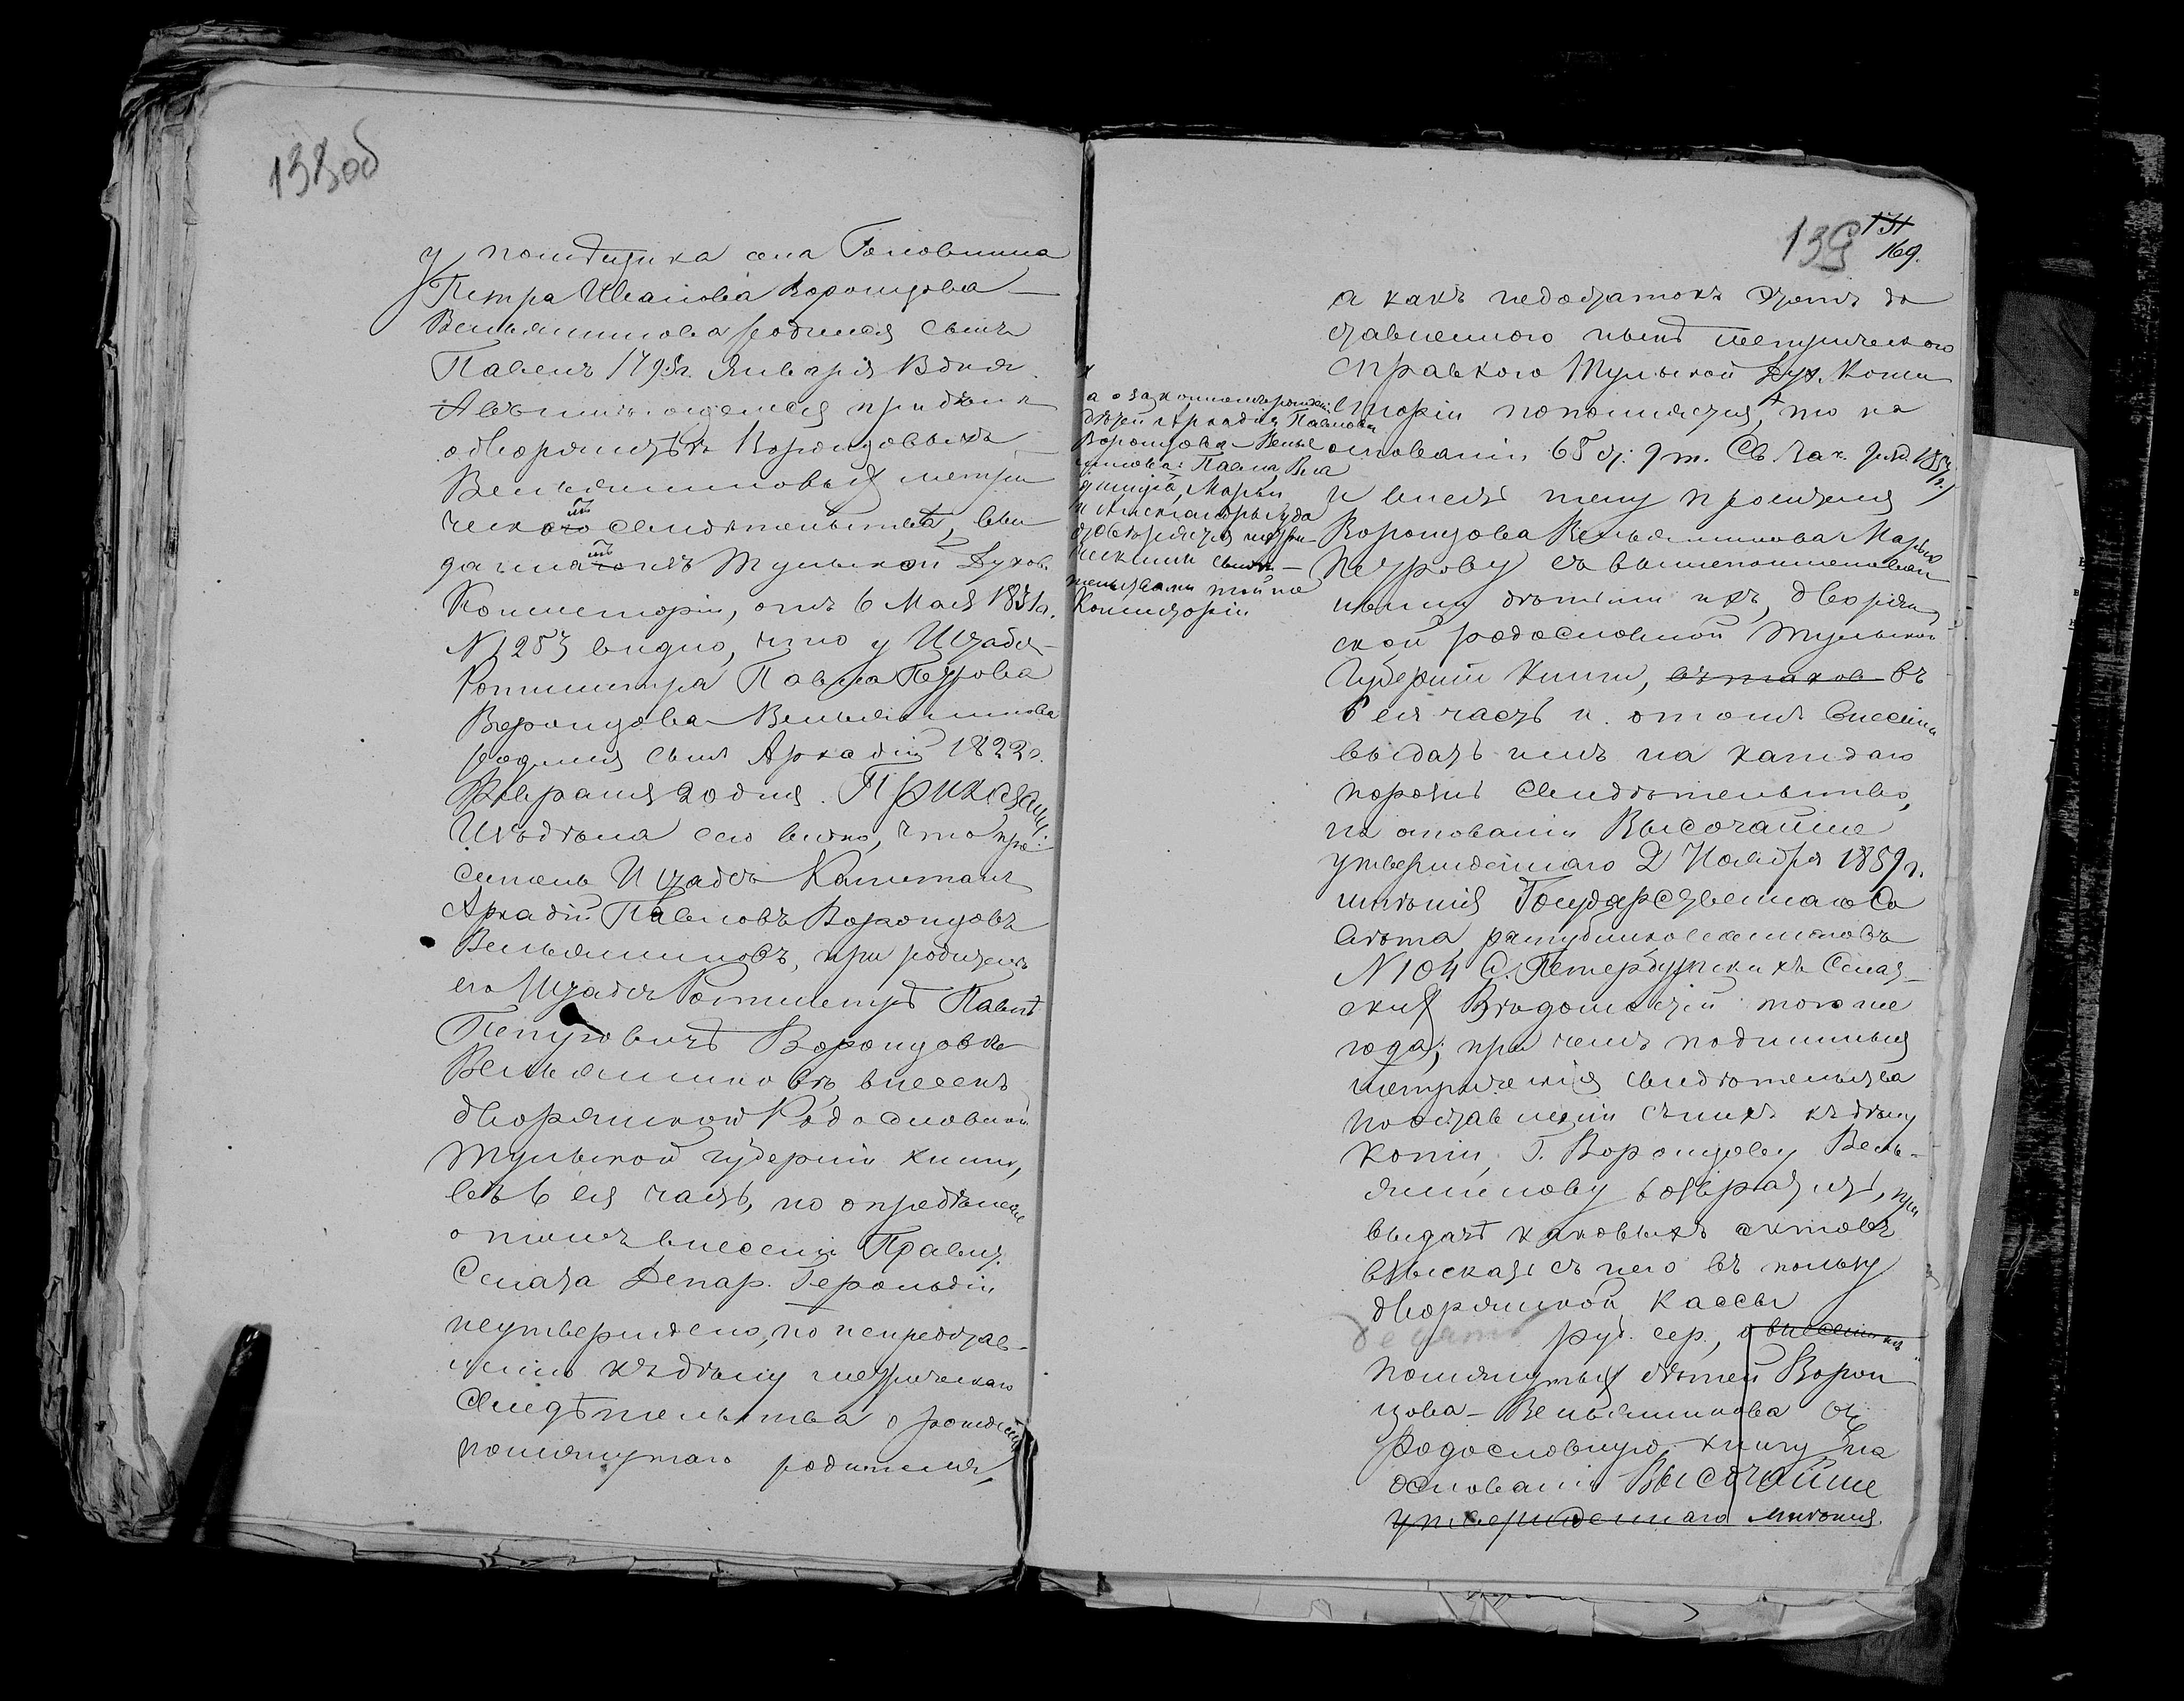 138об
у помѣщика села Головнина
Петра Иванова Воронцова
Вельяминова родился сынъ
Павелъ 1795г. Января
А въ имѣющемся при дѣлѣ
о дворянствѣ Воронцовыхъ
Вельяминовыхъ метри
ческомъ свидѣтельствѣ, вы
данномъ изъ Тульской Духов.
Консисторіи, отъ 6 Мая 1831г.
N 1253 видно, что у Штабсъ-
Ротмистра Павла Петрова
Воронцова-Вельяминова
родился сынъ Аркадій 1822г.
Февраля 20 дня. Приказали:
Изъ дѣла сего видно, что про
ситель Штабсъ Капитанъ
Аркадій Павловъ Воронцовъ
Вельяминовъ, при родителѣ
его Штабсъ Ротмистрѣ Павлѣ
Петровичѣ Воронцовѣ
Вельяминовѣ, внесенъ
дворянской Родословной
Тульской губерніи книги,
въ 6 ея часть, но опредѣленіе
о томъ внесеніи Правит.
Сената Депар. Герольдіи
неутверждено, по непредстав-
ленію къ дѣлу метрическаго
Свидѣтельства о рожденіи
помянутаго родителя,
139 131
169.
а какъ недостатокъ этотъ до
ставленною нынѣ метрическою
справкою Тульской Дух. Конси
сторіи пополняется, то на
основаніи 65 ст: 9 т. Св. Зак. изд. 1857г.
и внесть жену просителя
Воронцова Вельяминова Марью
Петрову съ вышепоименован
ными дѣтьми ихъ, дворян
ской родословной Тульской
Губерніи книги, въ таков въ
6 ея часть и. о томъ внесеніи
выдать имъ на каждаго
порознь Свидѣтельство,
на основаніи Высочайше
утвержденнаго 2 Ноября 1859г.
мнѣнія Государственнаго Со
вѣта,
N 104 С. Петербургскихъ Сенат-
скихъ Вѣдомостей того же
года; при чемъ подлинныя
метрическія свидѣтельства
по оставленіи съ нихъ къ дѣлу
копіи, Г. Воронцову Вель-
яминову возвратить, при
выдачѣ каковыхъ актовъ
взыскать съ него въ пользу
дворянской Кассы
десять руб. сер., о внесеніи же
помянутыхъ дѣтей Ворон
цова-Вельяминова въ
родословную книгу на
основаніи Высочайше
утвержденнаго мнѣнія.
х
а о законномъ рожденіи
дѣтей Аркадія Павлова
Воронцова-Велья
минова: Павла, Вла
диміра, Марьи
и Александры удо
стовѣряется метри-
ческими свидѣ-
тельствами той же
Консисторіи